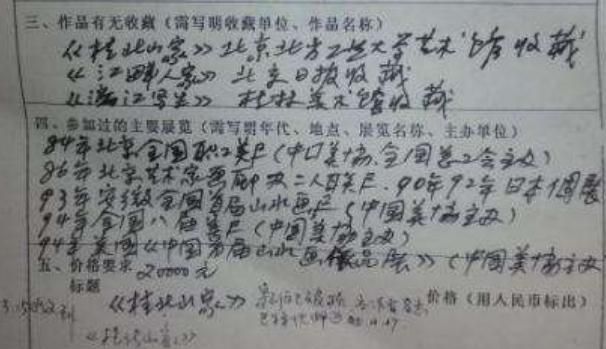 三、作品有无收藏（需写明收藏单位、作品名称）
《桂北山家》北京北方工业大学艺术馆收藏
《江畔人家》北京日报收藏
《漓江写生》桂林美术馆收藏
四、参加过的主要展览（需写明年代、地点、展览名称、主办单位）
84年北京全国职工美展（中国美协、全国总工会主办）
86年北京艺术家画廊双二人联美展、90年92年日本個展
93年安徽全国首届山水画展（中国美协主办）
94年全国八届美展（中国美协主办）
94年美国《中国首届山水画作品展》（中国美协主办
五、价格要求 20000元
标题
价格（用人民币标出）
《桂北山家》